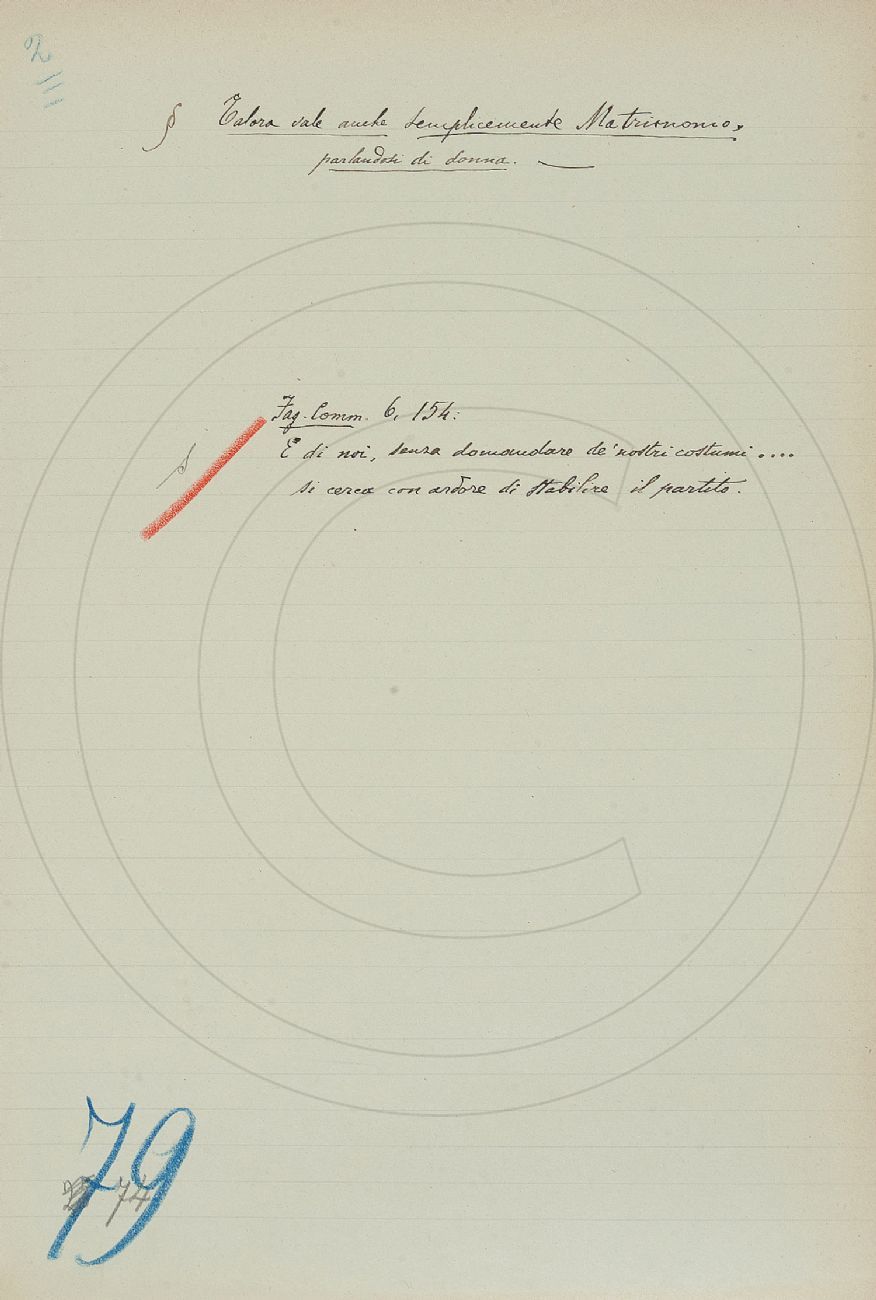 § Talora vale anche semplicemente Matrimonio,
parlandosi di donna. —
Fag. Comm. 6, 154:
E di noi, senza domandare de' nostri costumi....
si cerca con ardore di stabilire il partito.
79
74